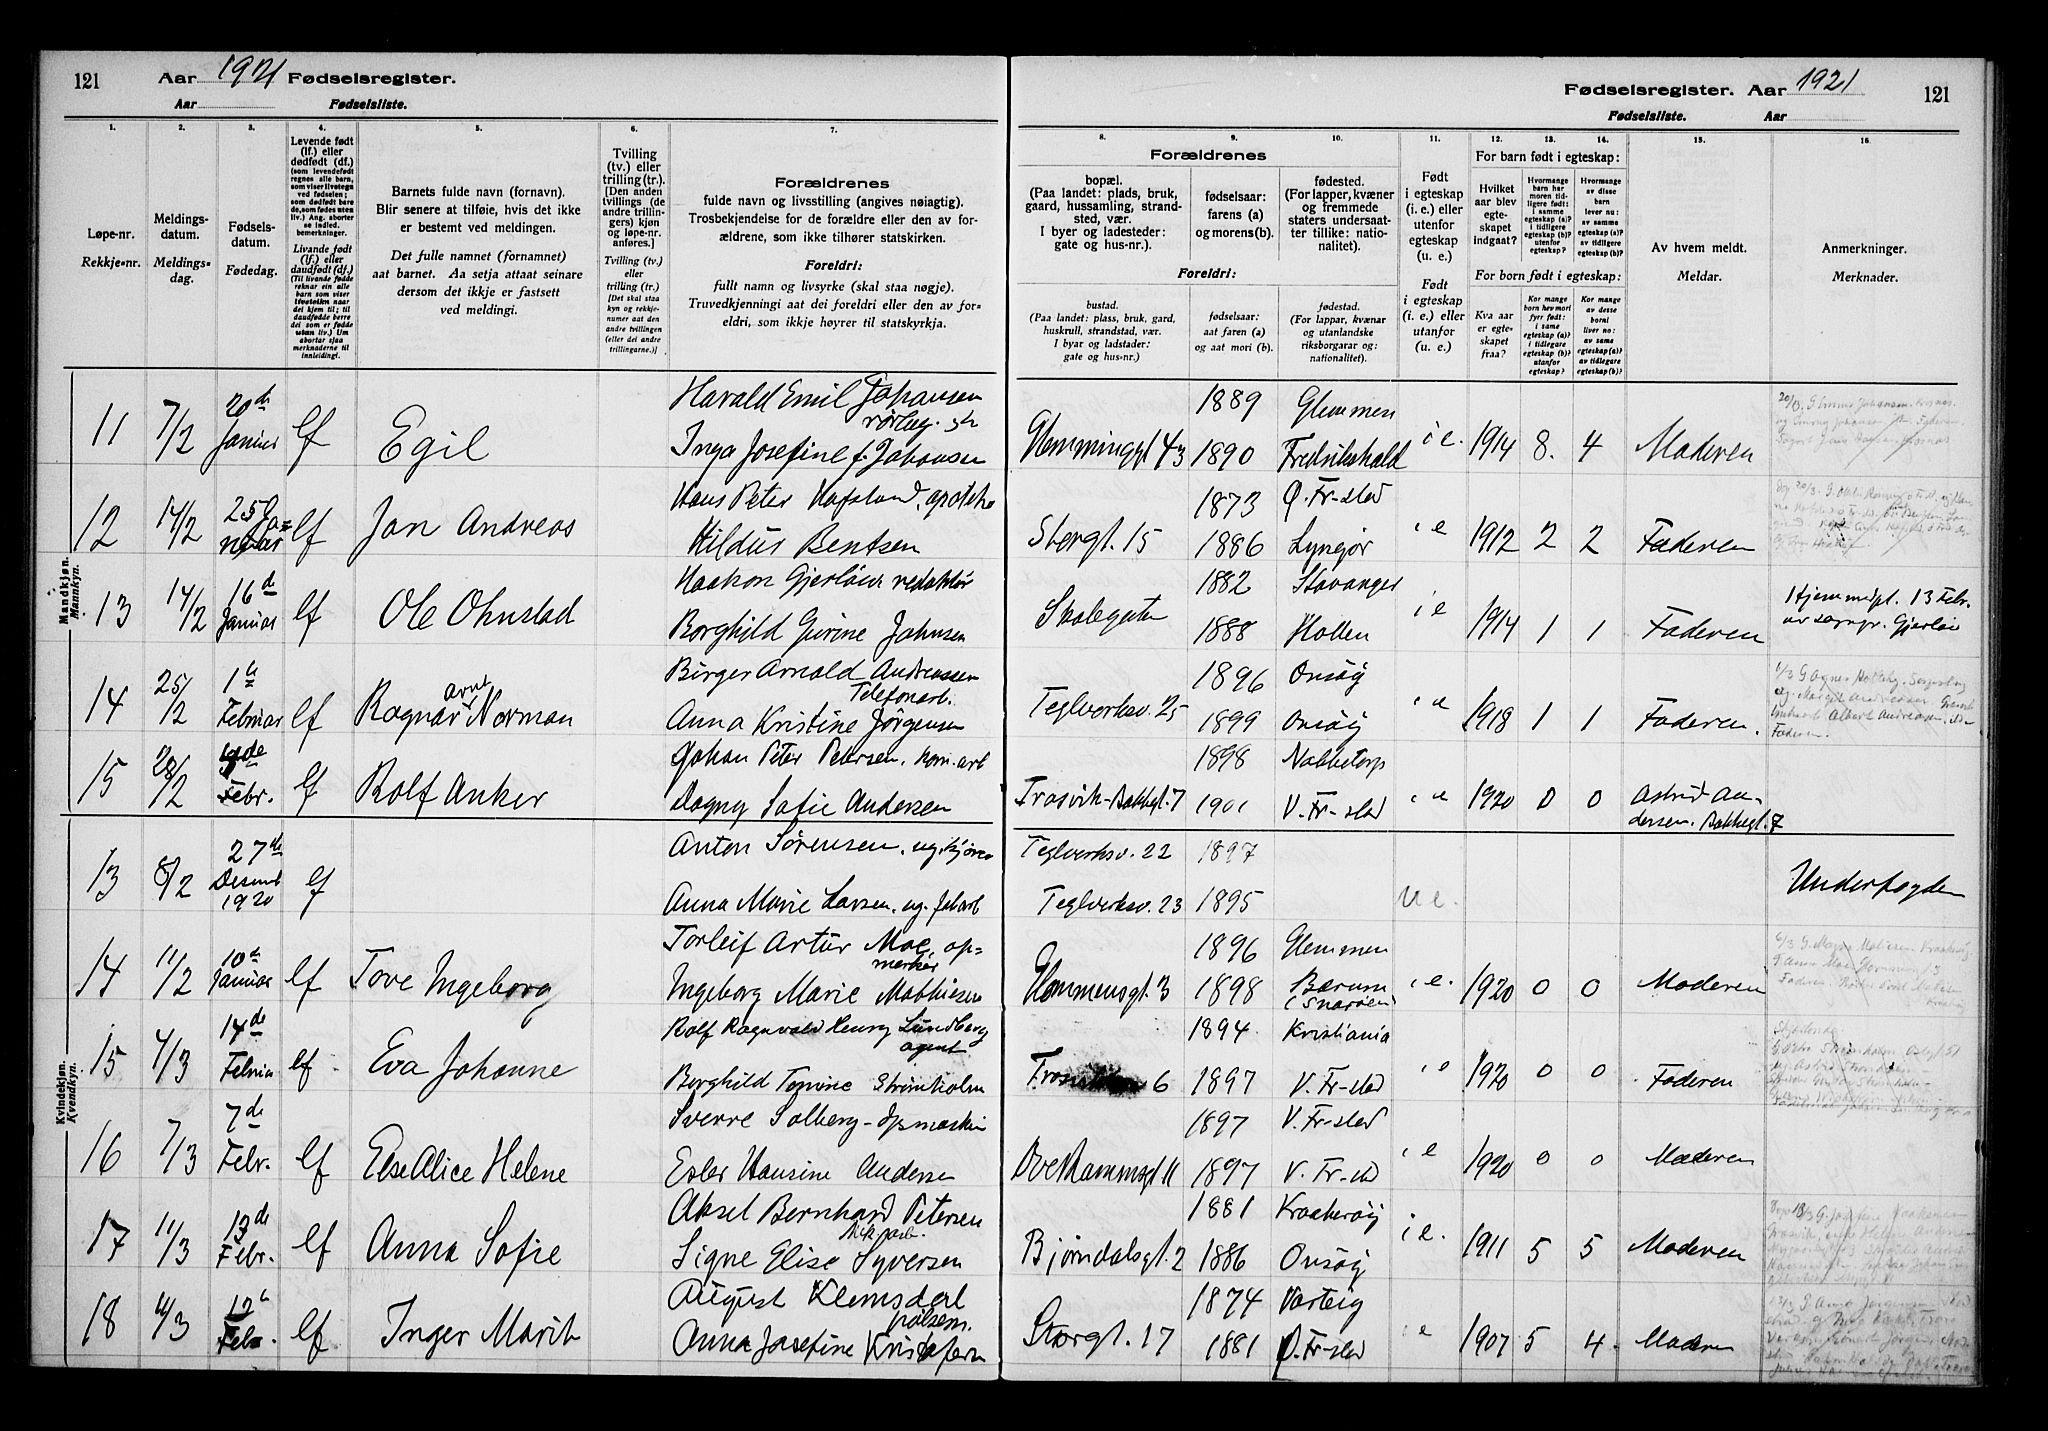 121
Aar 1921 Fødselsregister.
Aar Fødselsliste.
Fødselsregister. Aar 1921
Fødselsliste. Aar
121
1. 2. 3. 4. 5. 6. 7.
8. 9. 10. 11. 12. 13. 14. 15. 16.
Løpe-nr.
Rekkje-nr.
Meldings-
datum.
Meldings-
dag.
Fødsels-
datum.
Fødedag.
Levende født
(lf.) eller
dødfødt (df.)
(som levendefødt
regnes alle barn,
som viser livstegn
ved fødselen;
som dødfødt bare
de, som fødes uten
liv.) Ang. aborter
se indled.
bemerkninger.
Livande født
(lf.) eller
daudfødt (df.)
(Til livande fødde
reknar ein alle
barn som viser
livsteikn naar
dei kjem til; til
daudfødde berre
dei som er fødde
utan liv.) Um
abortar sjaa
merknaderne til
innleiding).
Barnets fulde navn (fornavn).
Blir senere at tilføie, hvis det ikke
er bestemt ved meldingen.
Det fulle namnet (fornamnet)
aat barnet. Aa setja attaat seinare
dersom det ikkje er fastsett
ved meldingi.
Tvilling
(tv.) eller
trilling (tr.).
[Den anden
tvillings (de
andre trillin-
gers) kjøn
og løpe-nr.
anføres.]
Tvilling (tv.)
eller
trilling (tr.)
[Det skal staa
kyn og rekkje-
numer aat den
andre tvillingen
(eller dei andre
trillingarne.)]
Forældrenes
fulde navn og livsstilling (angives nøiagtig).
Trosbekjendelse for de forældre eller den av for-
ældrene, som ikke tilhører statskirken.
Foreldri:
fullt namn og livsyrke (skal staa nøgje).
Truvedkjenningi aat dei foreldri eller den av for-
eldri, som ikkje høyrer til statskyrkja.
Forældrenes
bopæl.
(Paa landet: plads, bruk,
gaard, hussamling, strand-
sted, vær.
I byer og ladesteder:
gate og hus-nr.).
fødselsaar:
farens (a)
og morens(b).
fødested.
(For lapper, kvæner
og fremmede
staters undersaat-
ter tillike: natio-
nalitet).
Foreldri:
bustad.
(Paa landet: plass, bruk, gard,
huskrull, strandstad, vær.
I byar og ladstader:
gate og hus-nr.)
fødselsaar:
aat faren (a)
og aat mori (b).
fødestad.
(For lappar, kvænar
og utanlandske
riksborgarar og:
nationalitet).
Født
i egteskap
(i. e.) eller
utenfor
egteskap
(u. e.)
Født
i egteskap
(i. e.) eller
utanfor
(u. e.)
For barn født i egteskap:
Hvilket
aar blev
egte-
skapet
indgaat?
Hvormange
barn har
moren tid-
ligere født:
i samme
egteskap (a)?
i tidligere
egteskap (b)?
utenfor
egteskap?
Hvormange
av disse
barn
lever nu:
av samme
egteskap (a)?
av tidligere
egteskap (b)?
For born født i egteskap:
Kva aar
er egte-
skapet
fraa?
Kor mange
born hev mori
fyrr født:
i same
egteskap (a)?
i tidlegare
egteskap (b)?
utanfor
egteskap?
Kor mange
av desse
borni
liver no:
av same
egteskap (a)?
av tidlegare
egteskap (b)?
Av hvem meldt.
Meldar.
Anmerkninger.
Merknader.
Mandkjøn.
Mannkyn.
11 7/2 20de Januar lf Egil
Harald Emil Johansen
Inga Josefine f. Johansen
Glemmingt 43 1889 Glemmen
1890 Fredrikshald i e. 1914 8. 4 Moderen
12 14/2 25 Januar lf Jan Andreas
Hans Peter Hafslund, apoteke
Hildur Bentsen
Storgt. 15 1873 Ø. Fr-stad
1886 Lyngør i e 1912 2 2 Faderen
13 14/2 16de Januar lf Ole Ohnstad
Haakon Gjersløw redaktør
Borghild Gurine Johnsen
Skolegaten 1882 Stavanger
1888 Hollen i e 1914 1 1 Faderen
Hjemmedpt. 13 Febr.
av sogpr. Gjerløw
14 25/2 1ste Februar lf Ragnar Arnt Norman
Birger Arnold Andreassen
Telefonarb.
Anna Kristine Jørgensen
Teglverksv. 25 1896 Onsøy
1899 Onsøy i e 1918 1 1 Faderen.
15 28/2 Febr. lf Rolf Anker
Johan Peter Petersen. kom.arb
Dagny Sofie Andersen
Trosvik-Bakkegt. 7 1898 Nabbetorp
1901 V. Fr-stad i e 1920 0 0 Astrid An-
dersen. Bakkegt. 7
Kvindekjøn.
Kvendkyn.
13 8/2 27de Desemb 1920 lf
Anton Sørensen. ug.
Anna Marie Larsen. ug. fabarb
Teglverksv. 22 1897
Teglverksv. 23 1895 u e.
Underfogden
14 11/2 10de Januar lf Tove Ingeborg
Torleif Artur Moe, op-
mærker
Ingeborg Marie Mathiesen
Glommensgt. 3 1896 Glemmen
1898 Bærum
(Snarøen) i e. 1920 0 0 Moderen
15 4/3 14de Februar lf. Eva Johanne
Rolf Ragnvald Henry Lundberg
agent
Borghild Tomine Strømholm
6 1894. Kristiania
1897 V. Fr-stad i e 1920 0 0 Faderen
16 7/3 7de Febr. lf Else Alice Helene
Sverre Solberg
Ester Hansine Andersen
Ove Rammsgt 11 1897 V. Fr-stad
1897 V. Fr-stad i e 1920 0 0 Moderen
17 11/3 13de Febr. lf Anna Sofie
Aksel Bernhard Petersen
Signe Elise Syversen
Bjørndalsgt. 2 1881 Kraakerøy
1886 Onsøy i e. 1911 5 5 Moderen
18 12 Febr lf Inger Marit
August Klemsdal
pølsem.
Anna Josefine Kristofersen
Storgt. 17 1874 Varteig
1881 Ø. Fr-stad i e 1907 5 4. Moderen